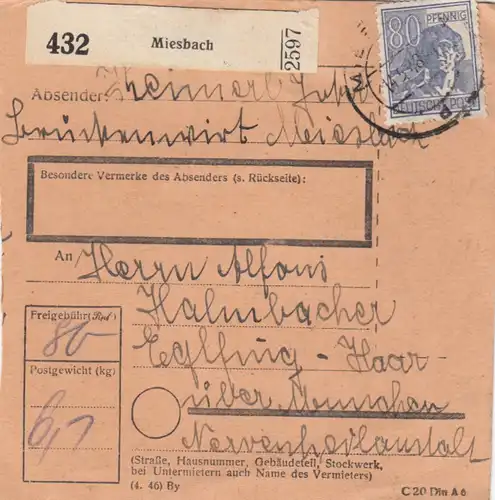 432 Miesbach 2597
80 PFENNIG
DEUTSCHE POST
Absender:
Brückenwirt Miesbach
Besondere Vermerke des Absenders (s. Rückseite):
An Herrn Alfons
Halmbacher
Freigebühr (Rpf)
80
Eglfing - Haar
Postgewicht (kg)
über München
6,1
Nervenheilanstalt
(Straße, Hausnummer, Gebäudeteil, Stockwerk,
bei Untermietern auch Name des Vermieters)
(4. 46) By
C 20 Din A 6